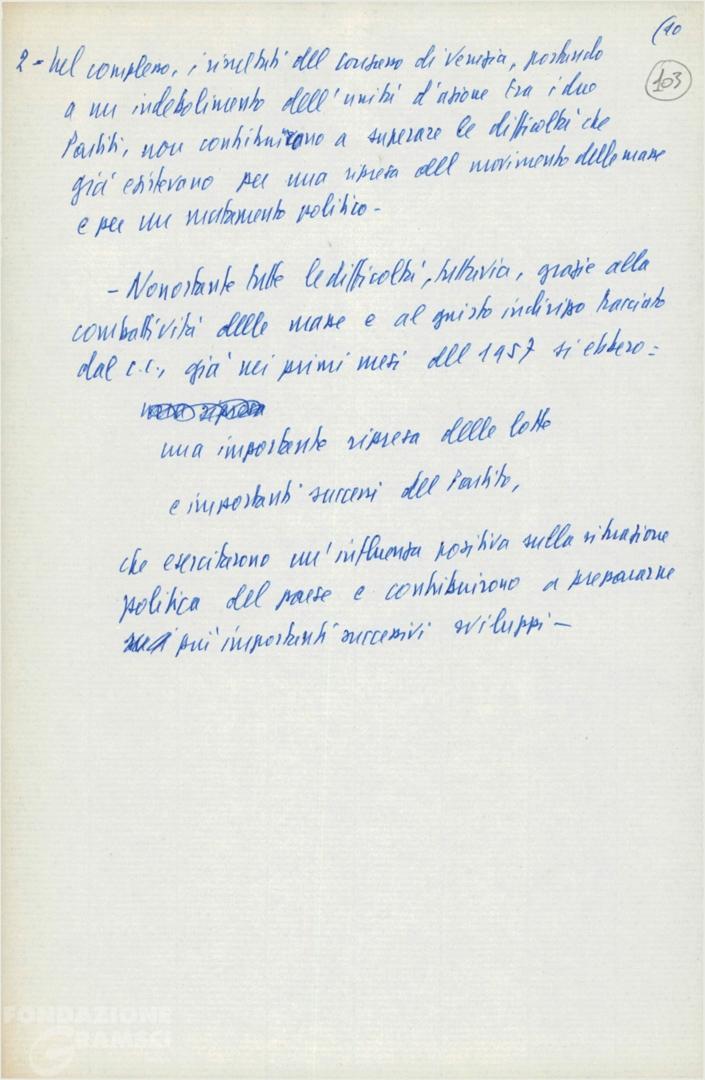 (10
103
2 - Nel complesso, i risultati del congresso di Venezia, portando
a un indebolimento dell'unità d'azione tra i due
Partiti, non contribuirono a superare le difficoltà che
già esistevano per una ripresa del movimento delle masse
e per un mutamento politico -
- Nonostante tutte le difficoltà, tuttavia, grazie alla
combattività delle masse e al giusto indirizzo tracciato
dal c.c., già nei primi mesi del 1957 si ebbero:
una ripresa
una importante ripresa delle lotte
e importanti successi del Partito,
che esercitarono un'influenza positiva sulla situazione
politica del paese e contribuirono a prepararne
i più importanti successivi sviluppi -
FONDAZIONE
GRAMSCI